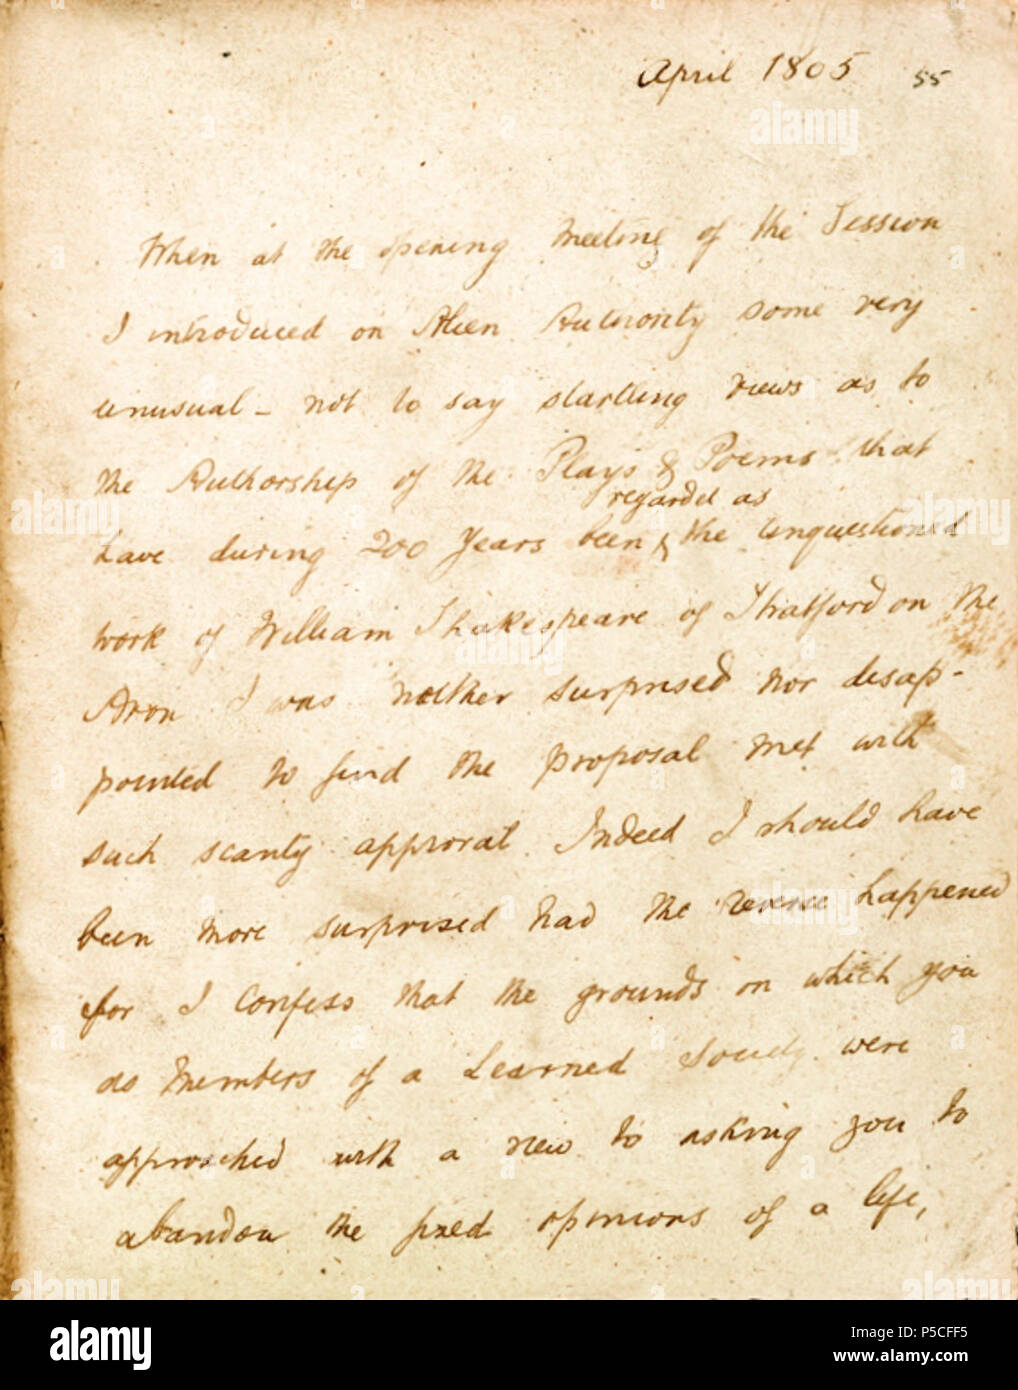 April 1805 55
When at the opening meeting of the Session
I introduced on Alien Authority some very
unusual - not to say startling views as to
the Authorship of the Plays & Poems that
regarded as
have during 200 Years been ⁁ the unquestioned
work of William Shakespeare of Stratford on the
Avon I was neither surprised nor disap-
pointed to find the proposal met with
such scanty approval. Indeed I should have
been more surprised had the reverse happened
for I confess that the grounds on which you
as Members of a Learned Society were
approached with a view to asking you to
abandon the fixed opinions of a life,
alamy
Image ID: P5CFF5
www.alamy.com